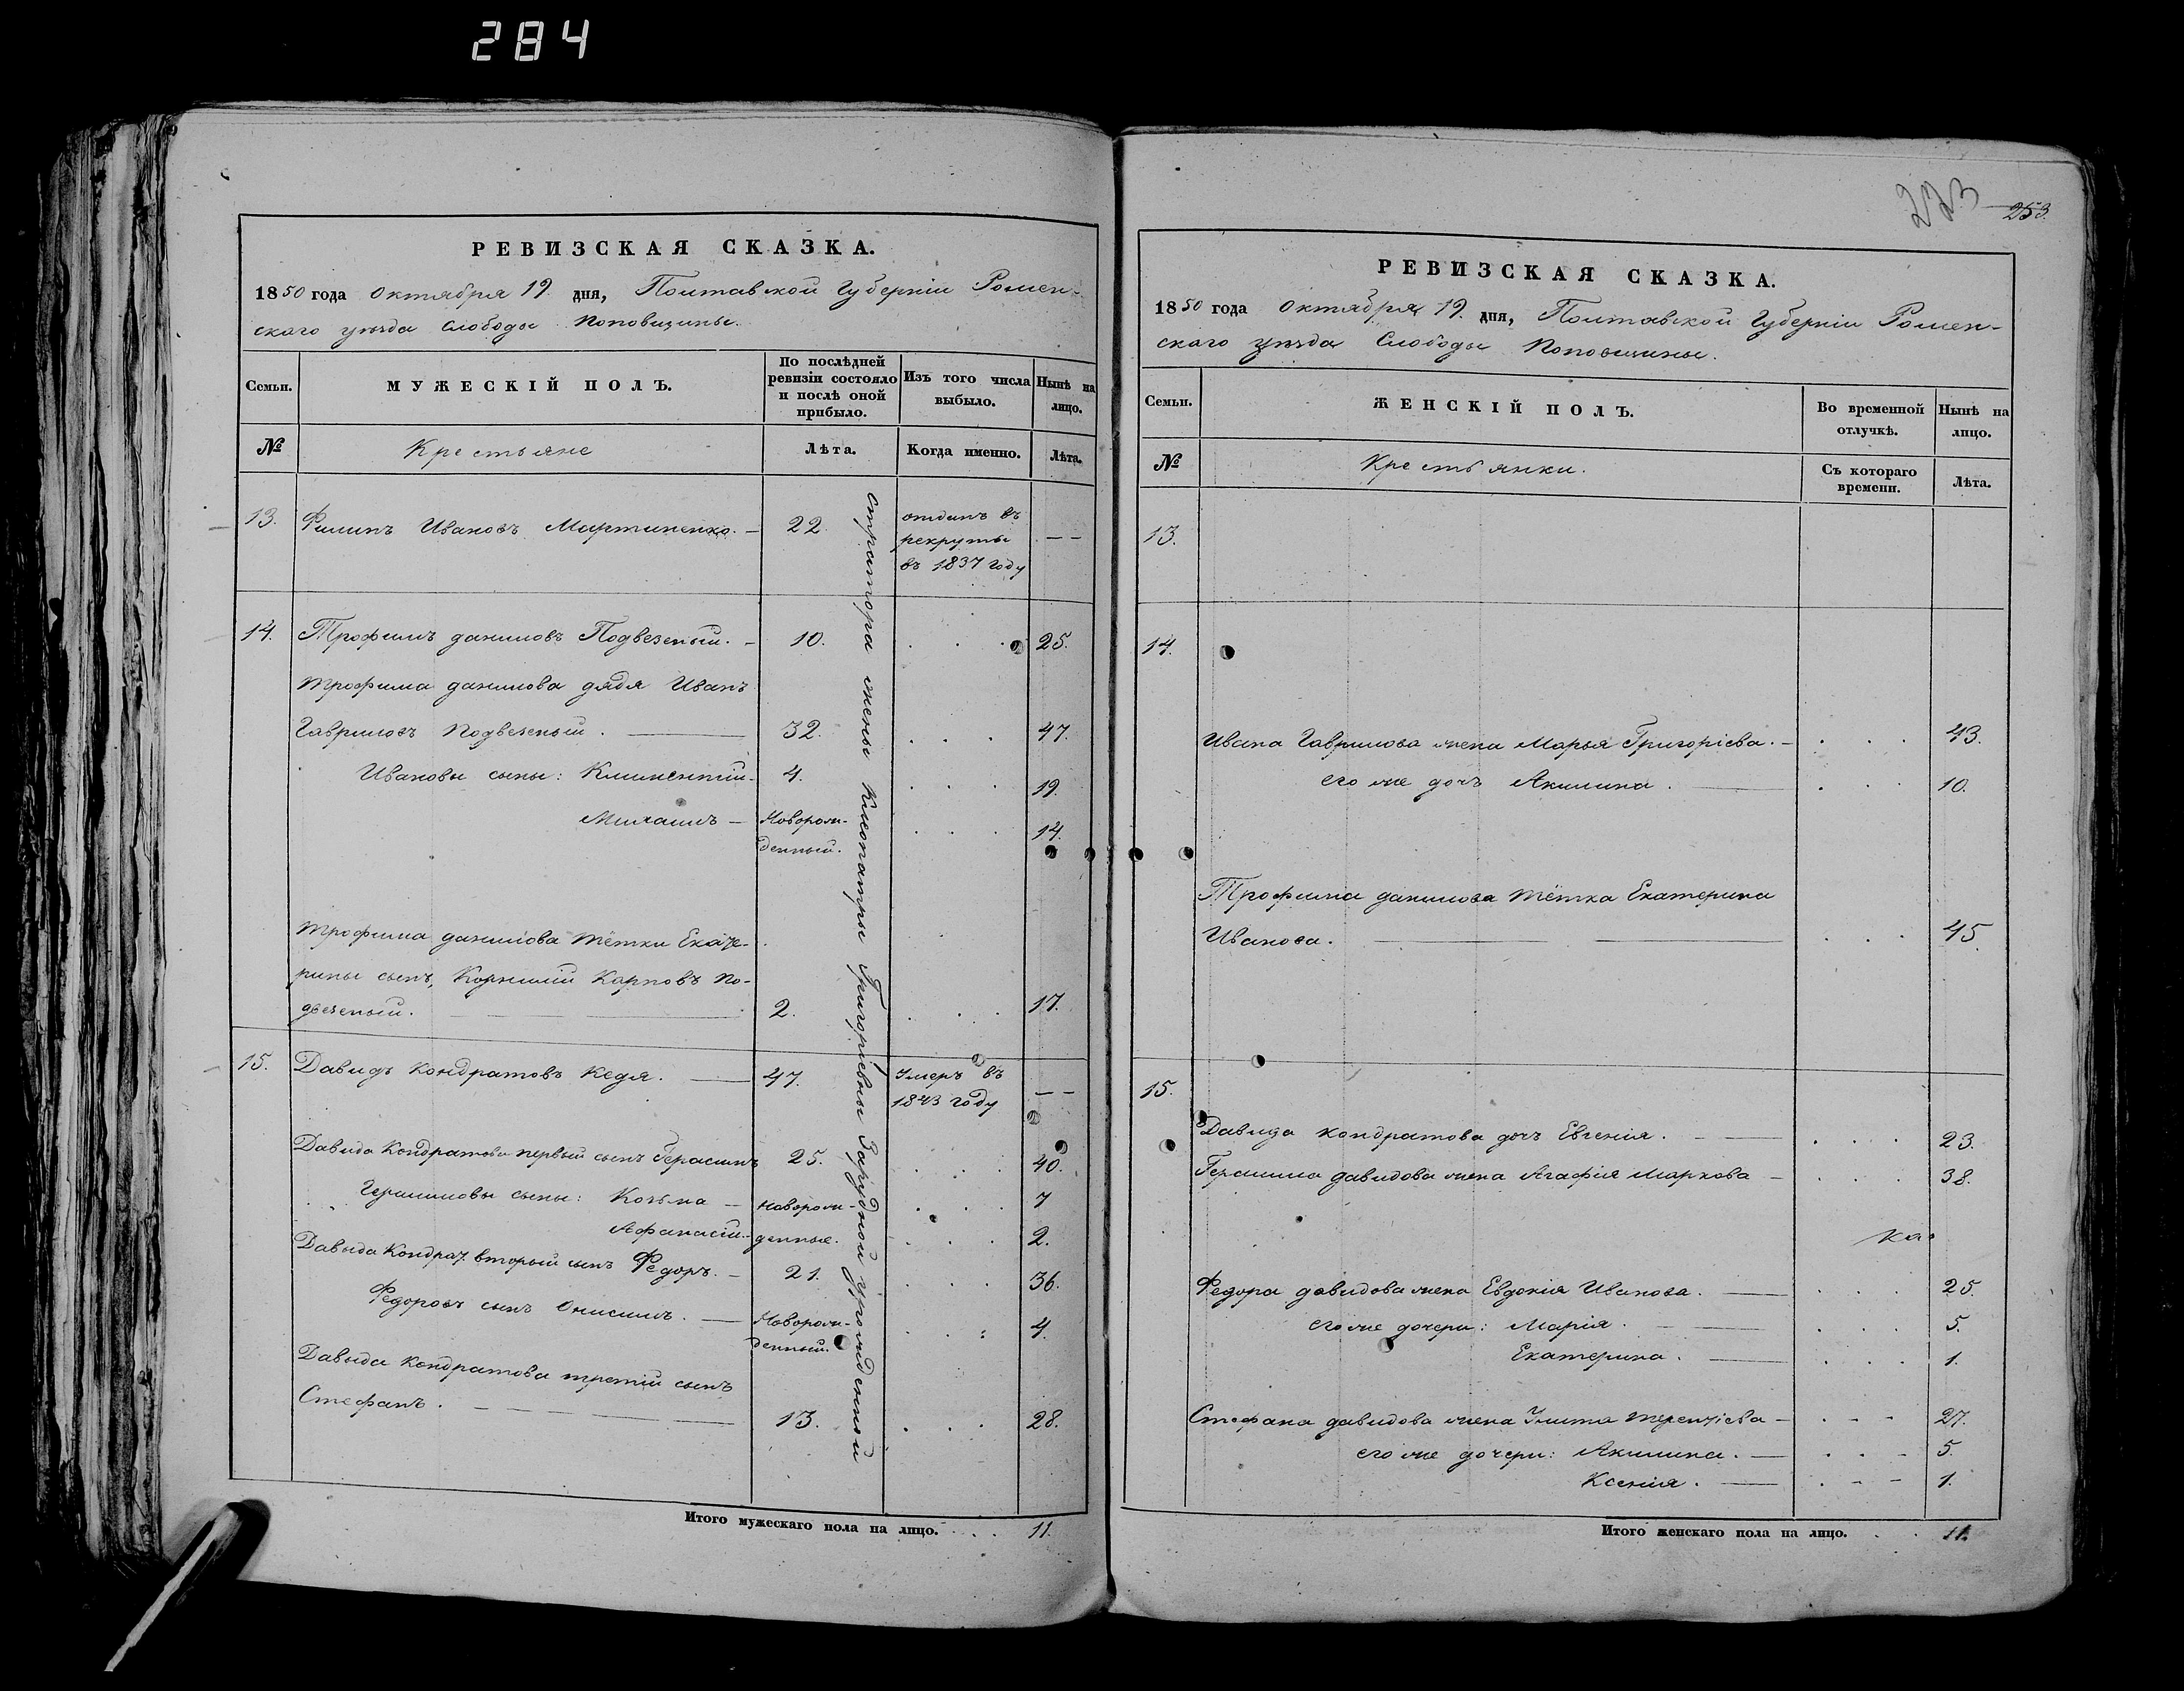 284
РЕВИЗСКАЯ СКАЗКА.
1850 года Октября 19. дня, Полтавской Губерніи Ромен-
скаго уѣзда Слободы Поповщины.
Семьи.
МУЖЕСКІЙ ПОЛЪ.
По послѣдней ревизіи состояло и послѣ оной прибыло.
Изъ того числа выбыло.
Нынѣ на лицо.
№
Крестьяне
Лѣта.
Когда именно.
Лѣта.
13. Филипъ Ивановъ Мартиненко. — 22 отданъ въ рекруты въ 1837 году — —
14. Трофимъ даниловъ Подвезеный. — 10. . . . 25.
Трофима данилова дядя Иванъ
Гавриловъ Подвезеный. — 32. . . . 47.
Ивановы сыны: Климентій — 4. . . . 19.
Михаилъ — Новорож-денный. . . . 14.
Трофима данилова тётки Екате-
рины сынъ, Корнилій Карповъ По-
двезеный. — 2. . . . 17.
15. Давидъ Кондратовъ Кедя. — 47. Умеръ въ 1843 году — —
Давида Кондратова первый сынъ Герасимъ 25. . . . 40.
Герасимовы сыны: Козьма — новорож- . . . 7
Афанасій — денные. . . . 2.
Давыда Кондрат. вторый сынъ Федоръ. — 21. . . . 36.
Федоровъ сынъ Онисимъ. — Новорож-денный. . . . 4.
Давыда Кондратова третій сынъ
Стефанъ. — 13. . . . 28.
Итого мужескаго пола на лицо. . . . 11.
стратора жены Клеопатры Григорьевны Зарудной урожденной
223
253.
РЕВИЗСКАЯ СКАЗКА.
1850 года Октября 19. дня, Полтавской Губерніи Ромен-
скаго уѣзда Слободы Поповщины.
Семьи.
ЖЕНСКІЙ ПОЛЪ.
Во временной отлучкѣ.
Нынѣ на лицо.
№
Крестьянки.
Съ котораго времени.
Лѣта.
13.
14.
Ивана Гаврилова жена Марья Григоріева. — . . . 43.
его же дочь Акилина. — . . . 10.
Трофима данилова тётка Екатерина
Иванова. — . . . 45.
15.
Давида Кондратова дочь Евгенія. — . . . 23.
Герасима давидова жена Агафія Маркова — . . . 38.
ка
Федора давидова жена Евдокія Иванова. — . . . 25.
его же дочери: Марія. — . . . 5.
Екатерина. — . . . 1.
Стефана давидова жена Улита Терентіева — . . . 27.
его же дочери: Акилина. — . . . 5.
Ксенія. — . . . 1.
Итого женскаго пола на лицо. . . 11.